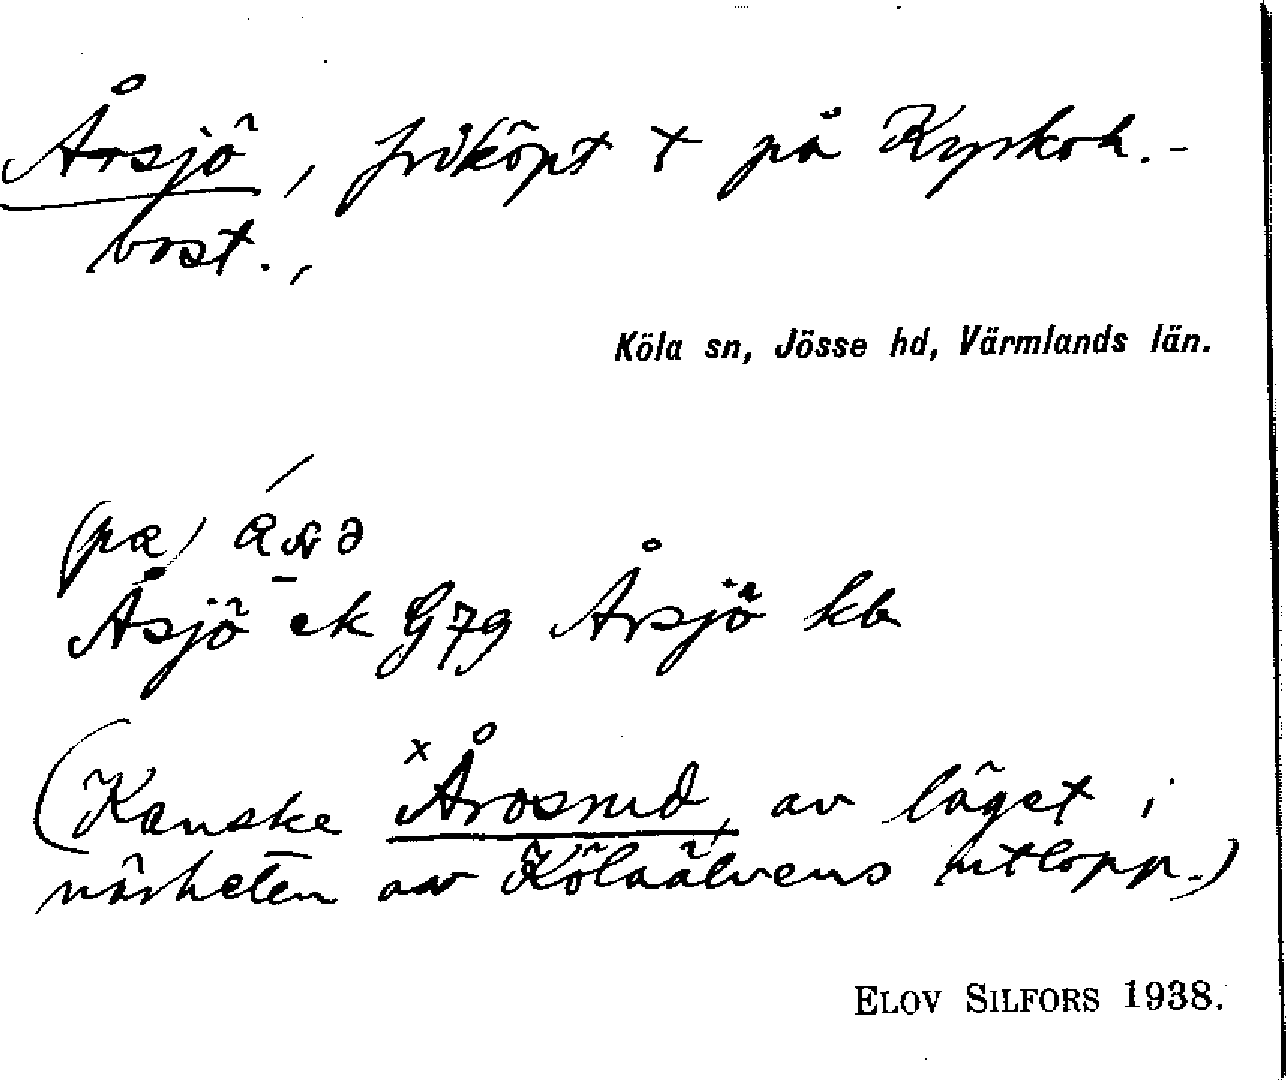 Årsjö, friköpt + på Kyrkoh.-
bost.,
Köla sn, Jösse hd, Värmlands län.
(pa)
Åsjö ek G79 Årsjö kb
(Kanske ˣÅrosrud, av läget i
närheten av Kölaälvens utlopp.)
ELOV SILFORS 1938.